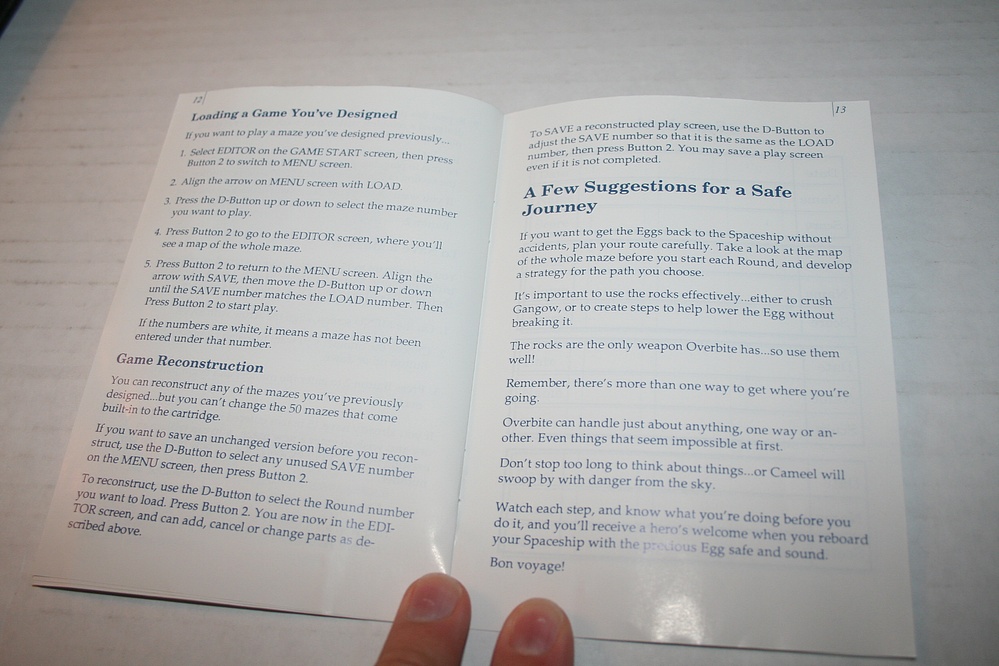 12
Loading a Game You've Designed
If you want to play a maze you've designed previously...
1. Select EDITOR on the GAME START screen, then press
Button 2 to switch to MENU screen.
2. Align the arrow on MENU screen with LOAD.
3. Press the D-Button up or down to select the maze number
you want to play.
4. Press Button 2 to go to the EDITOR screen, where you'll
see a map of the whole maze.
5. Press Button 2 to return to the MENU screen. Align the
arrow with SAVE, then move the D-Button up or down
until the SAVE number matches the LOAD number. Then
Press Button 2 to start play.
If the numbers are white, it means a maze has not been
entered under that number.
Game Reconstruction
You can reconstruct any of the mazes you've previously
designed...but you can't change the 50 mazes that come
built-in to the cartridge.
If you want to save an unchanged version before you recon-
struct, use the D-Button to select any unused SAVE number
on the MENU screen, then press Button 2.
To reconstruct, use the D-Button to select the Round number
you want to load. Press Button 2. You are now in the EDI-
TOR screen, and can add, cancel or change parts as de-
scribed above.
13
To SAVE a reconstructed play screen, use the D-Button to
adjust the SAVE number so that it is the same as the LOAD
number, then press Button 2. You may save a play screen
even if it is not completed.
A Few Suggestions for a Safe
Journey
If you want to get the Eggs back to the Spaceship without
accidents, plan your route carefully. Take a look at the map
of the whole maze before you start each Round, and develop
a strategy for the path you choose.
It's important to use the rocks effectively...either to crush
Gangow, or to create steps to help lower the Egg without
breaking it.
The rocks are the only weapon Overbite has...so use them
well!
Remember, there's more than one way to get where you're
going.
Overbite can handle just about anything, one way or an-
other. Even things that seem impossible at first.
Don't stop too long to think about things...or Cameel will
swoop by with danger from the sky.
Watch each step, and know what you're doing before you
do it, and you'll receive a hero's welcome when you reboard
your Spaceship with the precious Egg safe and sound.
Bon voyage!